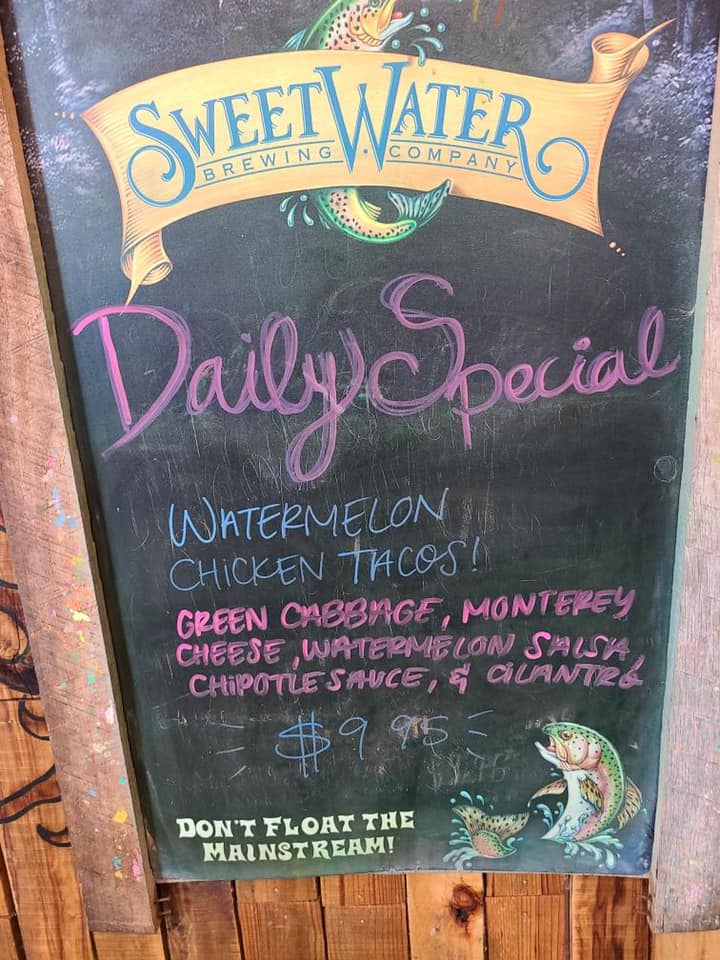 SWEETWATER
BREWING COMPANY
Daily Special
WATERMELON
CHICKEN TACOS!
GREEN CABBAGE, MONTEREY
CHEESE, WATERMELON SALSA,
CHIPOTLE SAUCE, & CILANTRO
$9.95
DON'T FLOAT THE
MAINSTREAM!